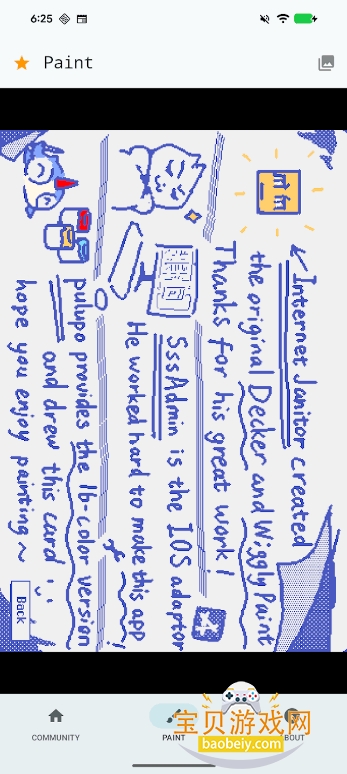 6:25
Paint
Internet Janitor created
the original Decker and Wiggly Paint
Thanks for his great work!
SssAdmin is the IOS adaptor
He worked hard to make this app!
pulupo provides the 16-color version
and drew this card
hope you enjoy painting ~
Back
COMMUNITY
PAINT
宝贝游戏网
baobeiy.com